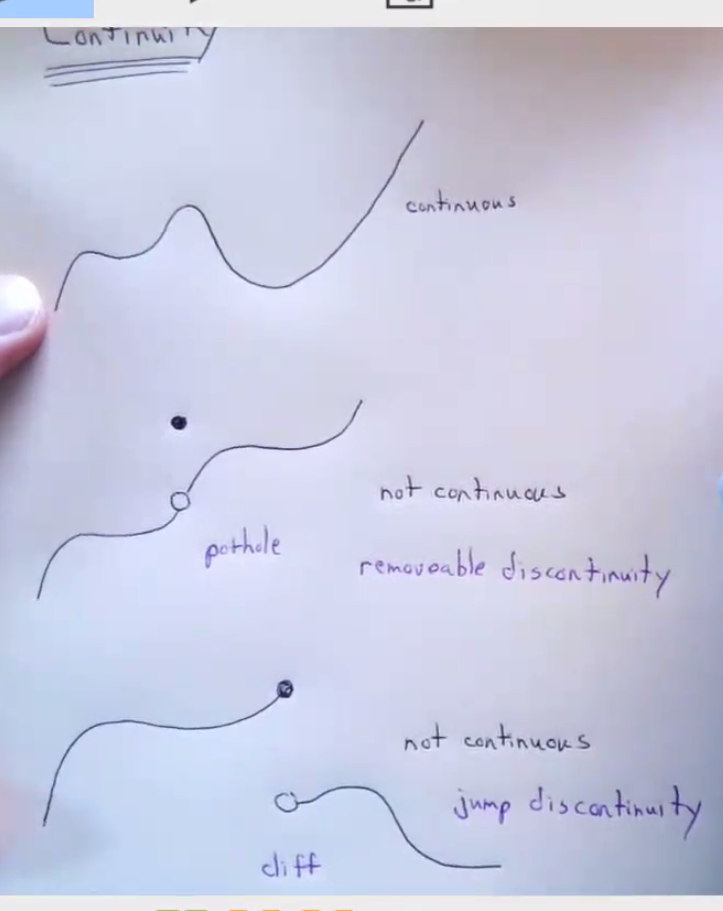 Continuity
continuous
not continuous
pothole
removeable discontinuity
not continuous
jump discontinuity
cliff